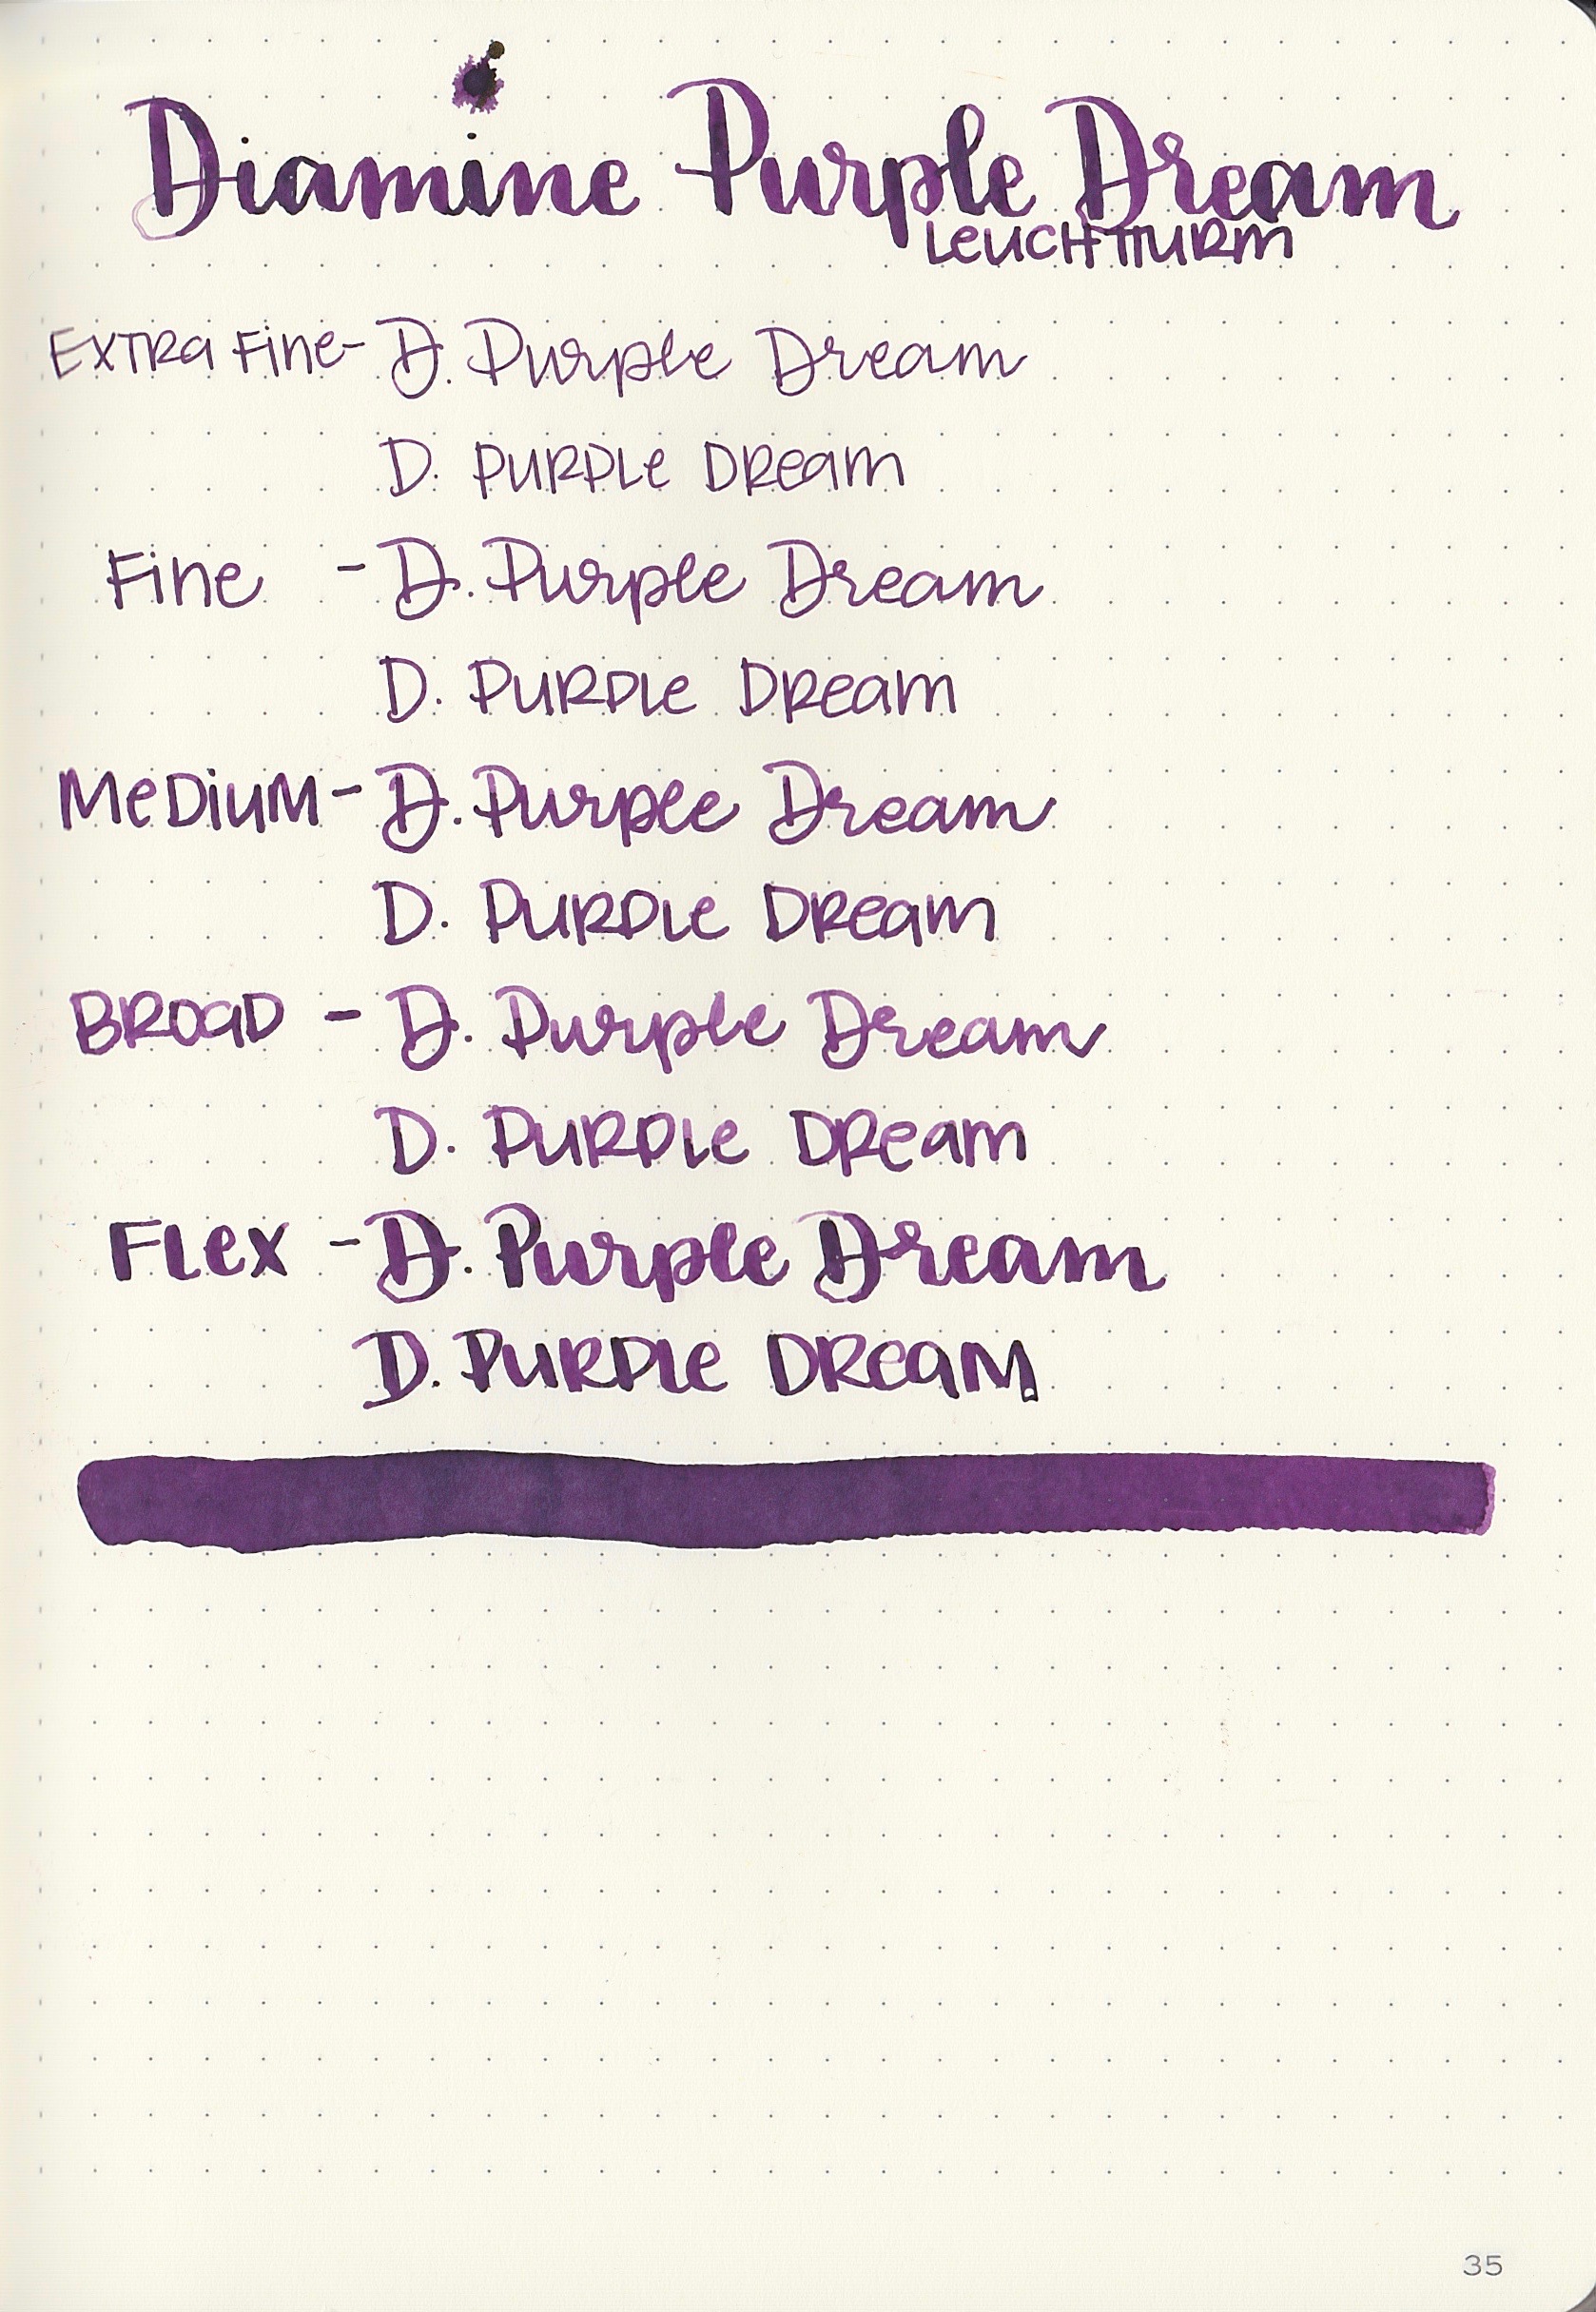 Diamine Purple Dream
Leuchtturm
Extra Fine - D. Purple Dream
D. Purple Dream
Fine - D. Purple Dream
D. Purple Dream
Medium - D. Purple Dream
D. Purple Dream
Broad - D. Purple Dream
D. Purple Dream
Flex - D. Purple Dream
D. Purple Dream
35